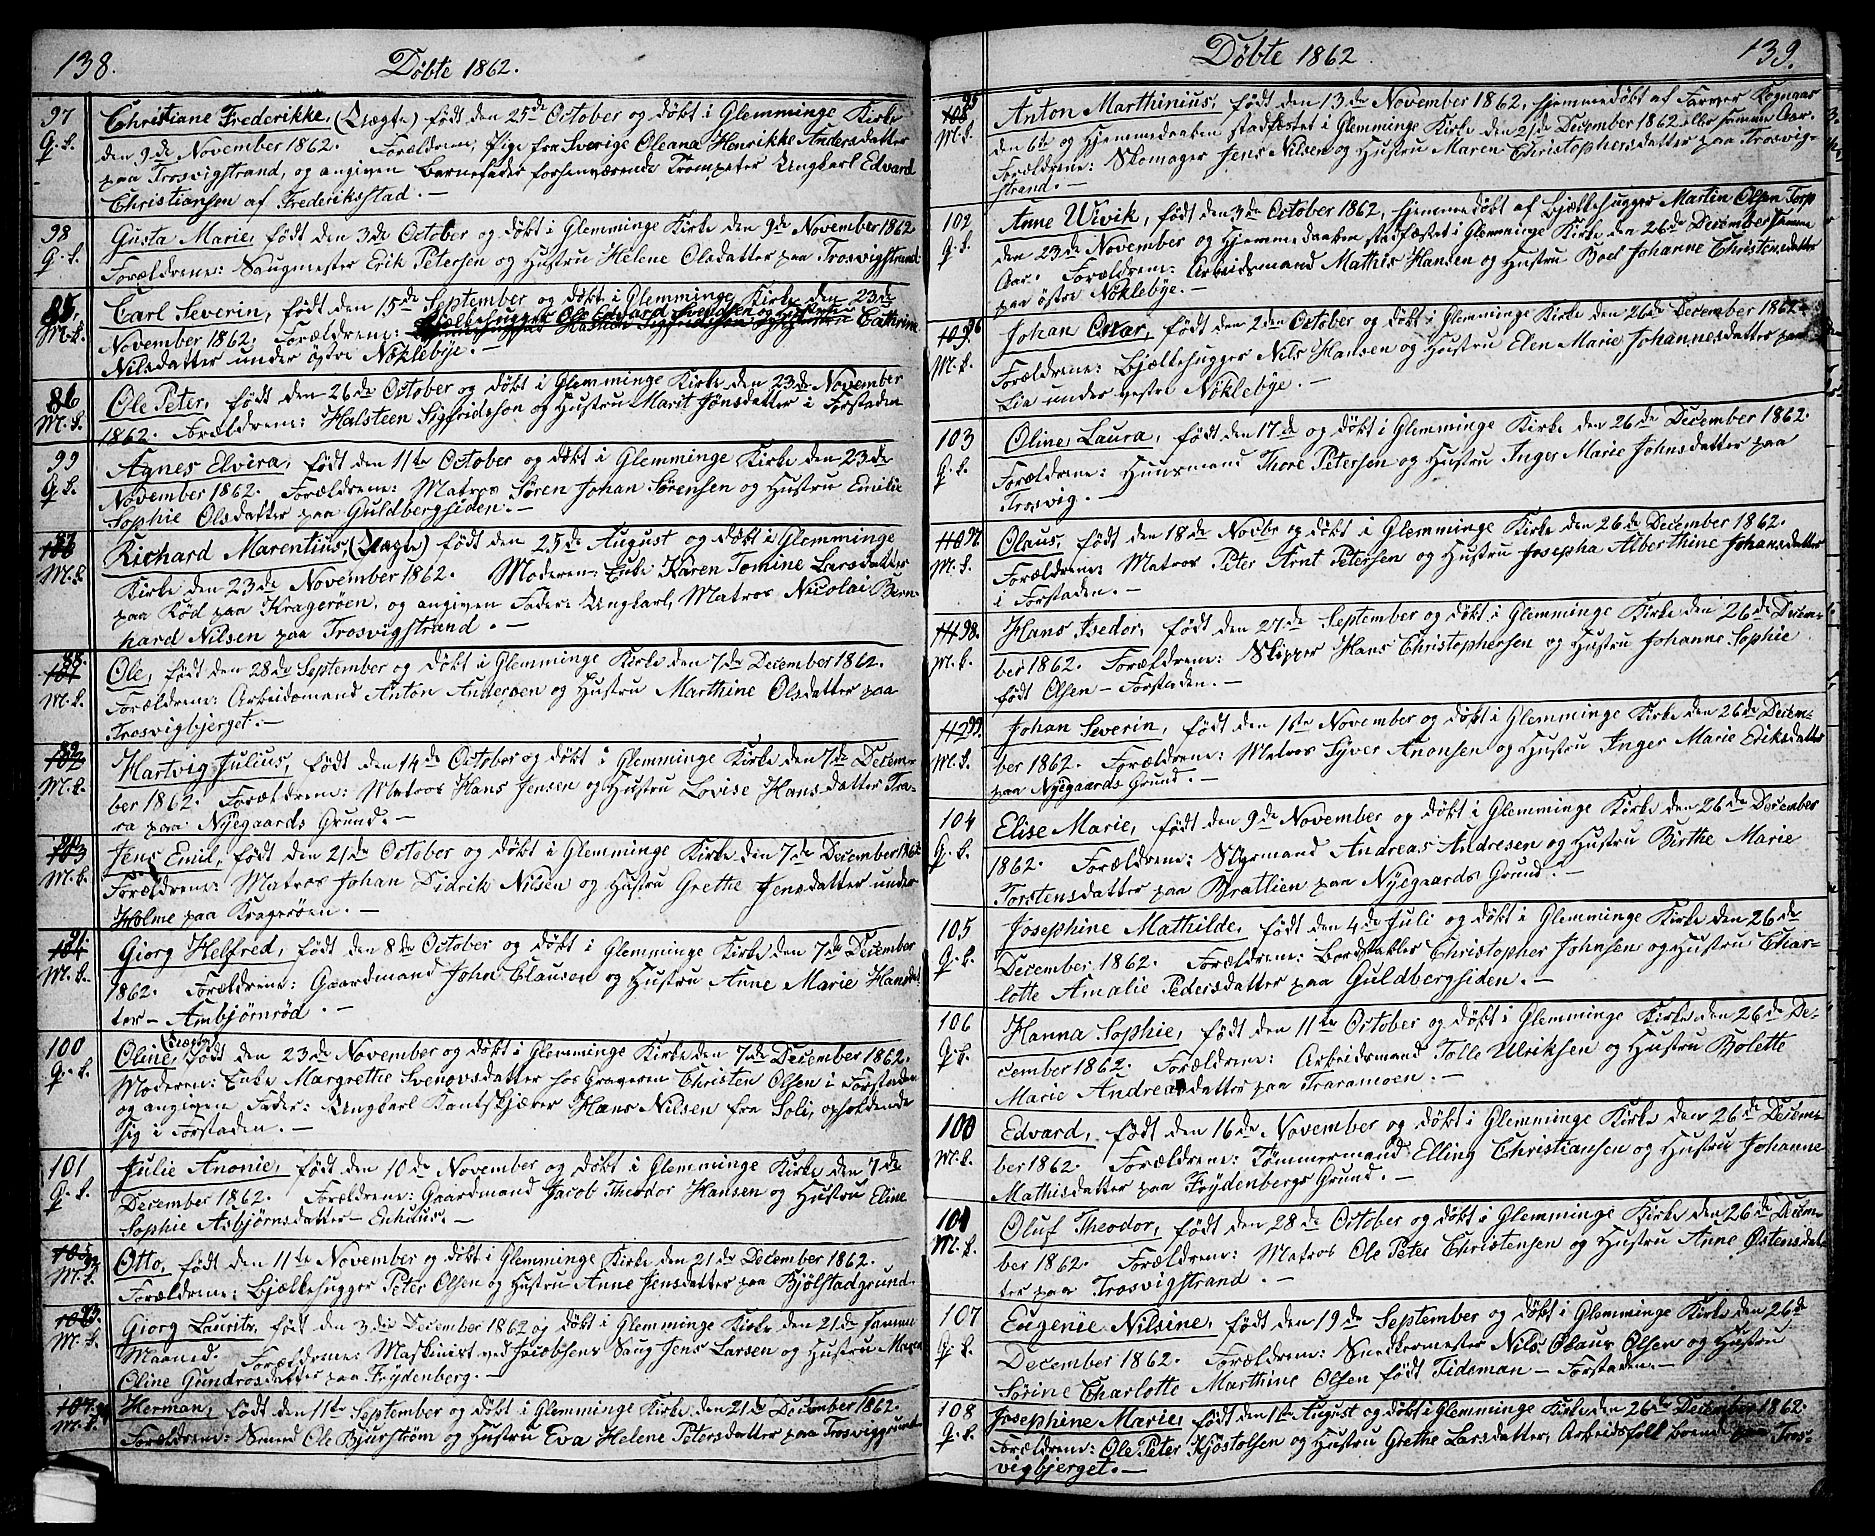 138.
Døbte 1862.
97
Q. k.
Christiane Frederikke, (Uægte) født den 25de October og døbt i Glemminge Kirke
den 9de November 1862. Forældrene: Pige fra Sverige Oleana Henrikke Andersdatter
paa Trosvigstrand, og angiven Barnefader forhenværende Trompeter Ungkarl Edvard
Christiansen af Frederiksstad. —
98
Q. k.
Gusta Marie, født den 3de October og døbt i Glemminge Kirke den 9de November 1862
Forældrene: Saugmester Erik Petersen og Hustru Helene Olsdatter paa Trosvigstrand
85.
M. k.
Carl Severin, født den 15de September og døbt i Glemminge Kirke den 23de
November 1862. Forældrene: Bjælkehugger Ole Edvard Svendsen og Hustru Cathrine
Nilsdatter under østre Nøklebye. —
86
M. k.
Ole Peter, født den 26de October og døbt i Glemminge Kirke den 23de November
1862. Forældrene: Halsteen Sigfridsson og Hustru Marit Jonsdatter i Forstaden
99
Q. k.
Agnes Elvira, født den 11te October og døbt i Glemminge Kirke den 23de
November 1862. Forældrene: Matros Søren Johan Sørensen og Hustru Emilie
Sophie Olsdatter paa Guldbergsiden. —
87
M. k.
Richard Marentius, (Uægte) født den 25de August og døbt i Glemminge
Kirke den 23de November 1862. Moderen: Enke Karen Tomine Larsdatter
paa Rød paa Kragerøen, og angiven Fader: Ungkarl, Matros Nicolai Bern-
hard Nilsen paa Trosvigstrand. —
88.
M. k.
Ole, født den 28de September og døbt i Glemminge Kirke den 7de December 1862.
Forældrene: Arbeidsmand Anton Andersen og Hustru Marthine Olsdatter paa
Trosvigbjerget. —
89
M. k.
Hartvig Julius, født den 14de October og døbt i Glemminge Kirke den 7de Decem-
ber 1862. Forældrene: Matros Hans Jensen og Hustru Lovise Hansdatter Tra-
ra paa Nyegaards Grund. —
103
M. k.
Jens Emil, født den 21de October og døbt i Glemminge Kirke den 7de December 1862
Forældrene: Matros Johan Didrik Nilsen og Hustru Grethe Jensdatter under
Holme paa Kragerøen. —
91
M. k.
Giorg Helfred, født den 8de October og døbt i Glemminge Kirke den 7de December
1862. Forældrene: Gaardmand John Clausen og Hustru Anne Marie Hansdat
ter — Ambjørnrød. —
100
Q. k.
(Uægte)
Oline, født den 23de November og døbt i Glemminge Kirke den 7de December 1862.
Moderen: Enke Margrethe Svenovsdatter hos Graveren Christen Olsen i Forstaden
og angiven Fader: Ungkarl Kantskjærer Hans Nilsen fra Soli, opholdende
sig i Forstaden. —
101
Q. k.
Julie Anonie, født den 10de November og døbt i Glemminge Kirke den 7de
December 1862. Forældrene: Gaardmand Jacob Theodor Hansen og Hustru Eline
Sophie Asbjørnsdatter — Enhuus. —
M. k.
Otto, født den 11te November og døbt i Glemminge Kirke den 21de December 1862.
Forældrene: Bjælkehugger Peter Olsen og Hustru Anne Jensdatter paa Bjølstadgrund
93.
M. k.
Giorg Laurits, født den 3die December 1862 og døbt i Glemminge Kirke den 21de samme
Maaned. Forældrene: Maskinist ved Jacobsens Saug Jens Larsen og Hustru Maren
Oline Gundrosdatter paa Frydenberg. —
107
M. k.
Herman, født den 11te September og døbt i Glemminge Kirke den 21de December 1862.
Forældrene: Smed Ole Bjurstrøm og Hustru Eva Helene Petersdatter paa Trosviggrunden
139.
Døbte 1862
95
M. k.
Anton Marthinius, født den 13de November 1862, hjemmedøbt af Farver Rognaas
den 6te og Hjemmedaaben stadfæstet i Glemminge Kirke den 21de December 1862 eller samme Aar.
Forældrene: Skomager Jens Nilsen og Hustru Maren Christophersdatter paa Trosvig-
strand. —
102
Q. k.
Anne Ulvik, født den 3de October 1862, hjemmedøbt af Bjælkehugger Martin Olsen Torp
den 23de November og Hjemmedaaben stadfæstet i Glemminge Kirke den 26de December samme
Aar. Forældrene: Arbeidsmand Mathis Hansen og Hustru Boel Johanne Christensdatter
paa østre Nøklebye. —
96
M. k.
Johan Oskar, født den 2den October og døbt i Glemminge Kirke den 26de December 1862.
Forældrene: Bjælkehugger Nils Hansen og Hustru Elen Marie Johannesdatter paa
Lia under vestre Nøklebye. —
103
Q. k.
Oline Laura, født den 17de og døbt i Glemminge Kirke den 26de December 1862.
Forældrene: Huusmand Thore Petersen og Hustru Inger Marie Johnsdatter paa
Trosvig. —
97
M. k.
Olaus, født den 18de Novbr og døbt i Glemminge Kirke den 26de December 1862.
Forældrene: Matros Peter Arnt Petersen og Hustru Josepha Alberthine Johansdatter
i Forstaden. —
98.
M. k.
Hans Isedor, født den 27de September og døbt i Glemminge Kirke den 26de Decem-
ber 1862. Forældrene: Skipper Hans Christophersen og Hustru Johanne Sophie
født Olsen — Forstaden. —
99.
M. k.
Johan Severin, født den 1ste November og døbt i Glemminge Kirke den 26de Decem-
ber 1862. Forældrene: Matros Syver Anonsen og Hustru Inger Marie Eriksdatter
paa Nyegaards Grund. —
104
Q. k.
Elise Marie, født den 9de November og døbt i Glemminge Kirke den 26de December
1862. Forældrene: Styrmand Andreas Andresen og Hustru Birthe Marie
Torstensdatter paa Bratlien paa Nyegaards Grund. —
105
Q. k.
Josephine Mathilde, født den 4de Juli og døbt i Glemminge Kirke den 26de
December 1862. Forældrene: Bordstabler Christopher Johnsen og Hustru Char-
lotte Amalie Pedersdatter paa Guldbergsiden. —
106
Q. k.
Hanna Sophie, født den 11te October og døbt i Glemminge Kirke den 26de De-
cember 1862. Forældrene: Arbeidsmand Tolle Ulriksen og Hustru Bolette
Marie Andreasdatter paa Traramoen. —
100
M. k.
Edvard, født den 16de November og døbt i Glemminge Kirke den 26de Decem-
ber 1862. Forældrene: Tømmermand Elling Christiansen og Hustru Johanne
Mathisdatter paa Frydenbergs Grund. —
101
M. k.
Oluf Theodor, født den 28de October og døbt i Glemminge Kirke den 26de Decem-
ber 1862. Forældrene: Matros Ole Peter Christensen og Hustru Anne Østensdat-
ter paa Trosvigstrand. —
107
Q. k.
Eugenie Nilsine, født den 19de September og døbt i Glemminge Kirke den 26de
December 1862. Forældrene: Snedkermester Nils Olaus Olsen og Hustru
Sørine Charlotte Marthine Olsen født Tidsman — Forstaden. —
108
Q. k.
Josephine Marie, født den 1ste August og døbt i Glemminge Kirke den 26de December 1862.
Forældrene: Ole Peter Kjøstolsen og Hustru Grethe Larsdatter, Arbeidsfolk boende paa Tros-
vigbjerget. —